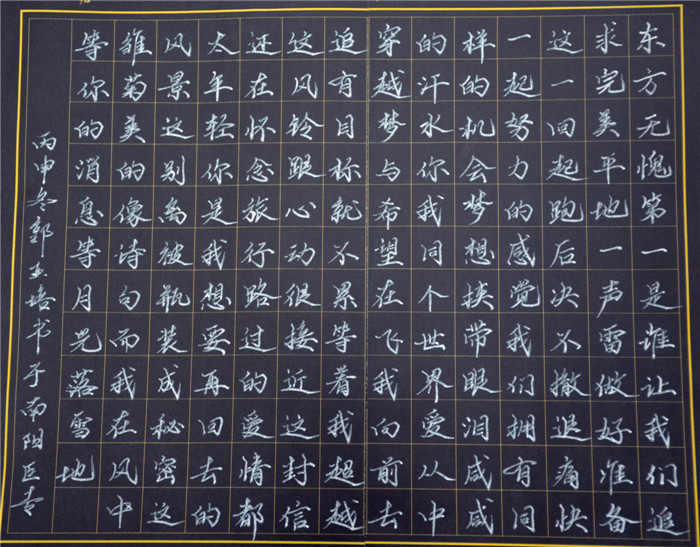 东方无愧第一是谁让我们追
求完美平地一声雷做好准备
这一回起跑后决不撤退痛快
一起努力的感觉我们拥有同
样的机会梦想挟带眼泪咸咸
的汗水你我同个世界爱从中
穿越梦与希望在飞我向前去
追有目标就不累等着我超越
这风铃跟心动很接近这封信
还在怀念旅行路过的愛情都
太年轻你是我想要再回去的
风景这别离被瓶装成秘密这
雏菊美的像诗句而我在风中
等你的消息等月光落雪地
丙申冬郭玉培书于南阳医专